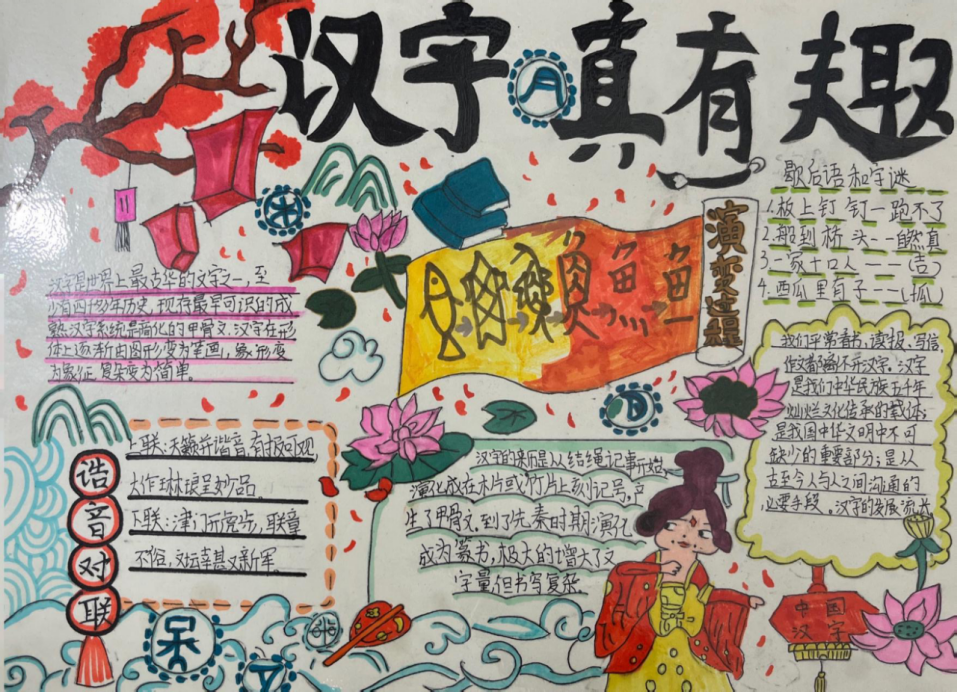 汉字真有趣
汉字是世界上最古华的文字之一,至
少有四千多年历史,现存最早可识的成
熟汉字系统是简化的甲骨文,汉字在形
体上逐渐由图形变为笔画,象形变
为象征,复杂变为简单。
演变过程
鱼
歇后语和字谜
1.板上钉钉一跑不了
2.船到桥头--自然真
3.一家十口人---(吉)
4.西瓜里有子---(孤)
我们平常看书,读报,写信,
作文都离不开汉字。汉字
是我们中华民族五千年
灿烂文化传承的载体;
是我国中华文明中不可
缺少的重要部分;是从
古至今人与人之间沟通的
必要手段。汉字的发展流长
浩音对联
上联:天籁并谐音,有报可观
大作琳琅呈妙品
下联:津门新虎步,联章
不俗,文坛幸甚又新军
汉字的来历是从结绳记事开始,
演化成在木片或竹片上刻记号,产
生了甲骨文,到了先秦时期演化
成为篆书,极大的增大了文
字量,但书写复杂.
中国
汉字
呆
文